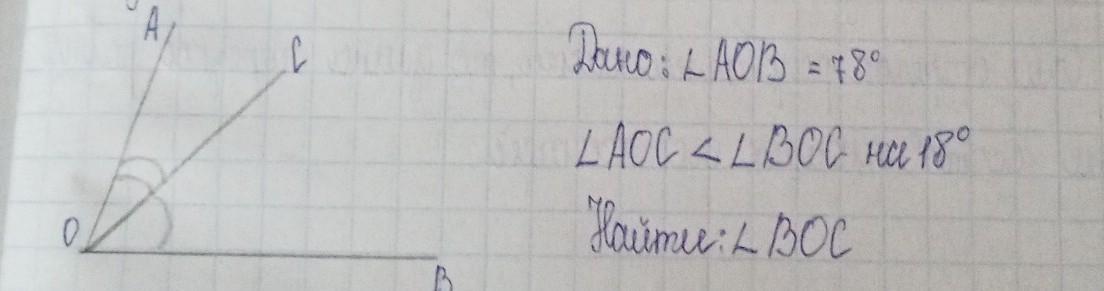 A
C
O
B
Дано: ∠AOB = 78°
∠AOC < ∠BOC на 18°
Найти: ∠BOC